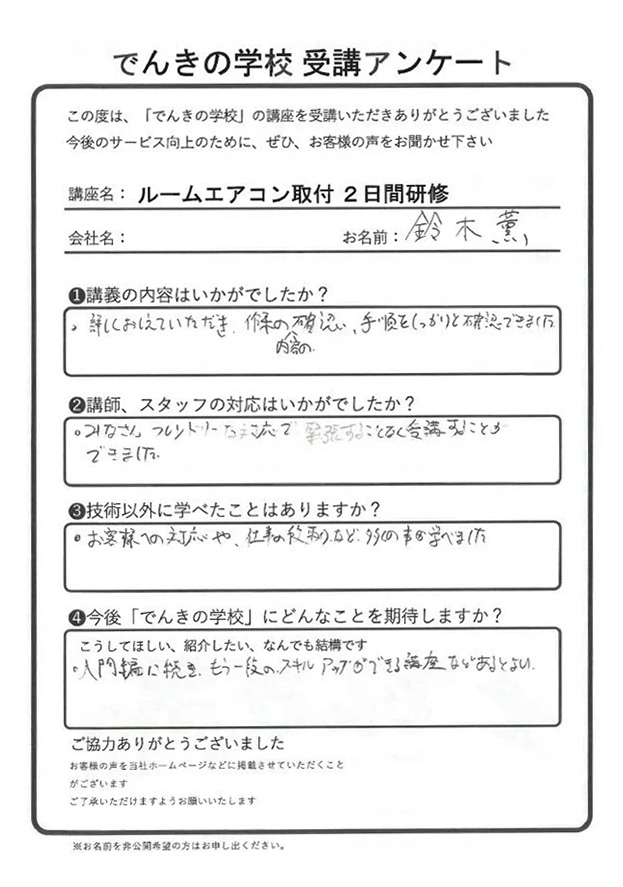 でんきの学校 受講アンケート
この度は、「でんきの学校」の講座を受講いただきありがとうございました
今後のサービス向上のために、ぜひ、お客様の声をお聞かせ下さい
講座名： ルームエアコン取付 2日間研修
会社名：
お名前： 鈴木 薫
❶講義の内容はいかがでしたか？
・詳しくおしえていただき、作業の内容の確認い、手順をしっかりと確認できました
❷講師、スタッフの対応はいかがでしたか？
・みなさん フレンドリーな対応で 緊張することなく受講することが
できました。
❸技術以外に学べたことはありますか？
・お客様への対応や、仕事の段取りなど、多くの事が学べました
❹今後「でんきの学校」にどんなことを期待しますか？
こうしてほしい、紹介したい、なんでも結構です
・入門編に続き、もう一段のスキルアップができる講座などがあるとよい。
ご協力ありがとうございました
お客様の声を当社ホームページなどに掲載させていただくこと
がございます
ご了承いただけますようお願いいたします
※お名前を非公開希望の方はお申し出ください。